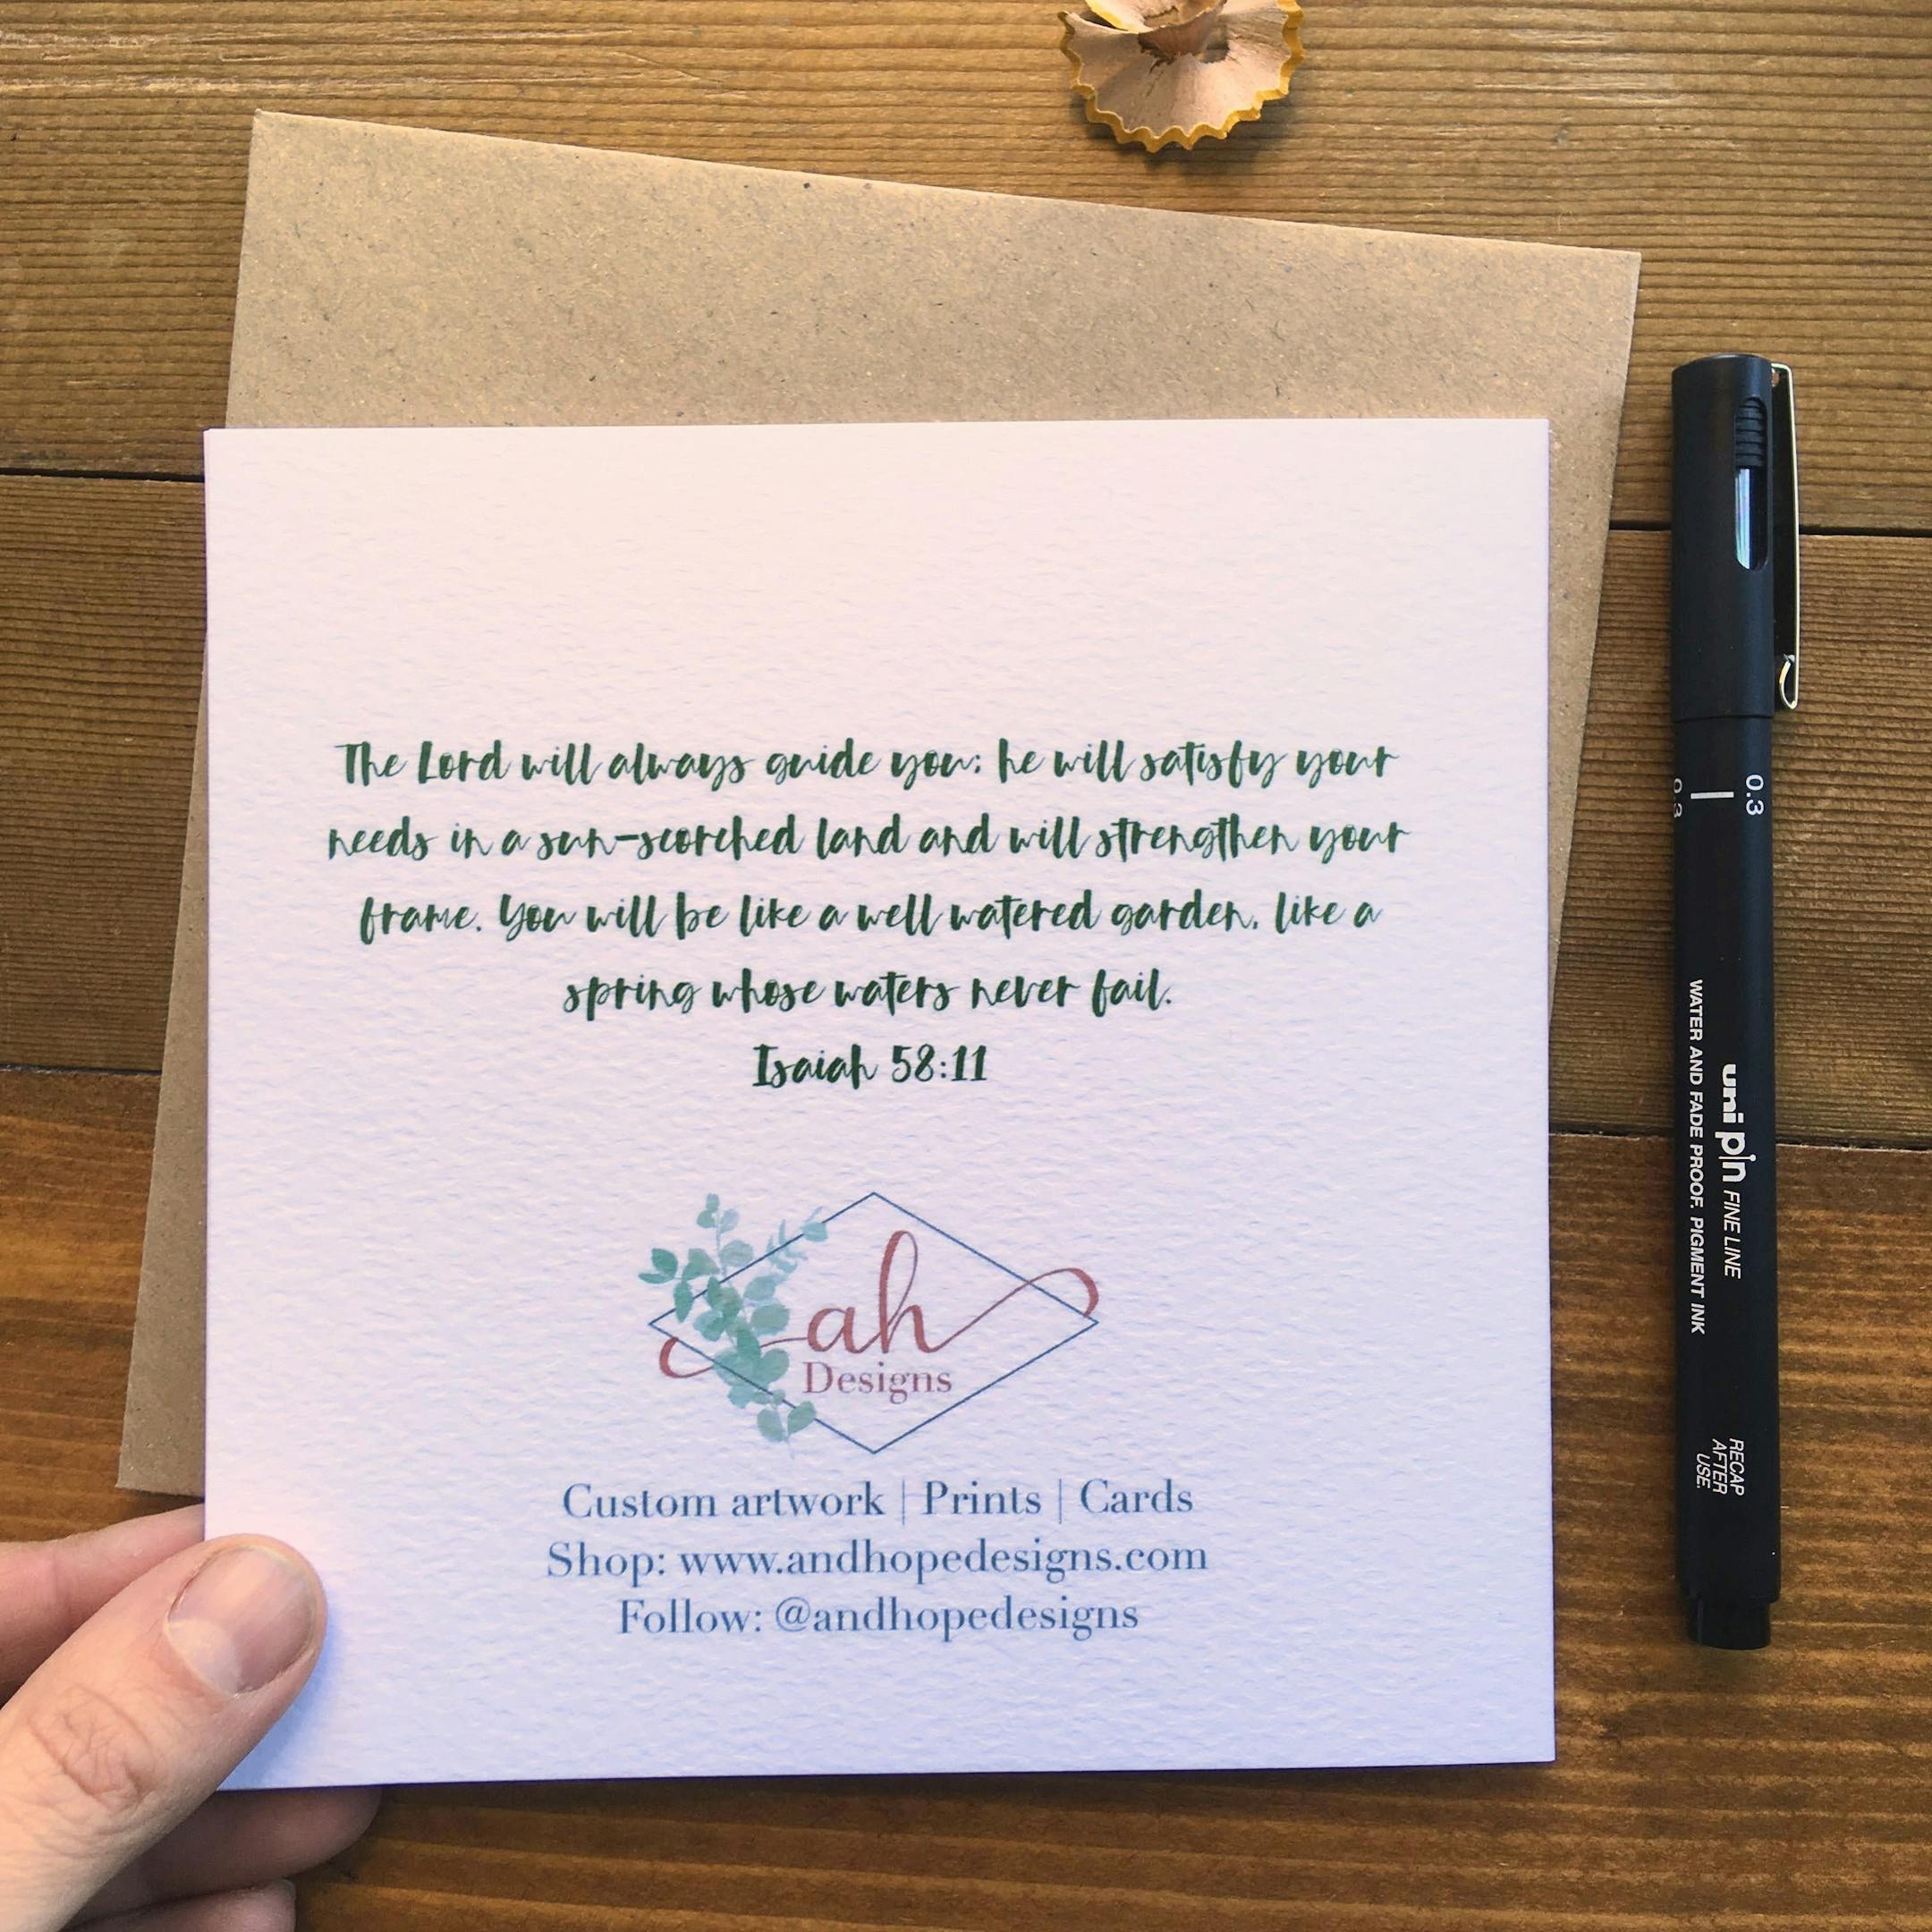 The Lord will always guide you; he will satisfy your
needs in a sun-scorched land and will strengthen your
frame. You will be like a well watered garden, like a
spring whose waters never fail.
Isaiah 58:11
ah
Designs
Custom artwork | Prints | Cards
Shop: www.andhopedesigns.com
Follow: @andhopedesigns
0.3
0.3
uni pin FINE LINE
WATER AND FADE PROOF. PIGMENT INK
RECAP
AFTER
USE.